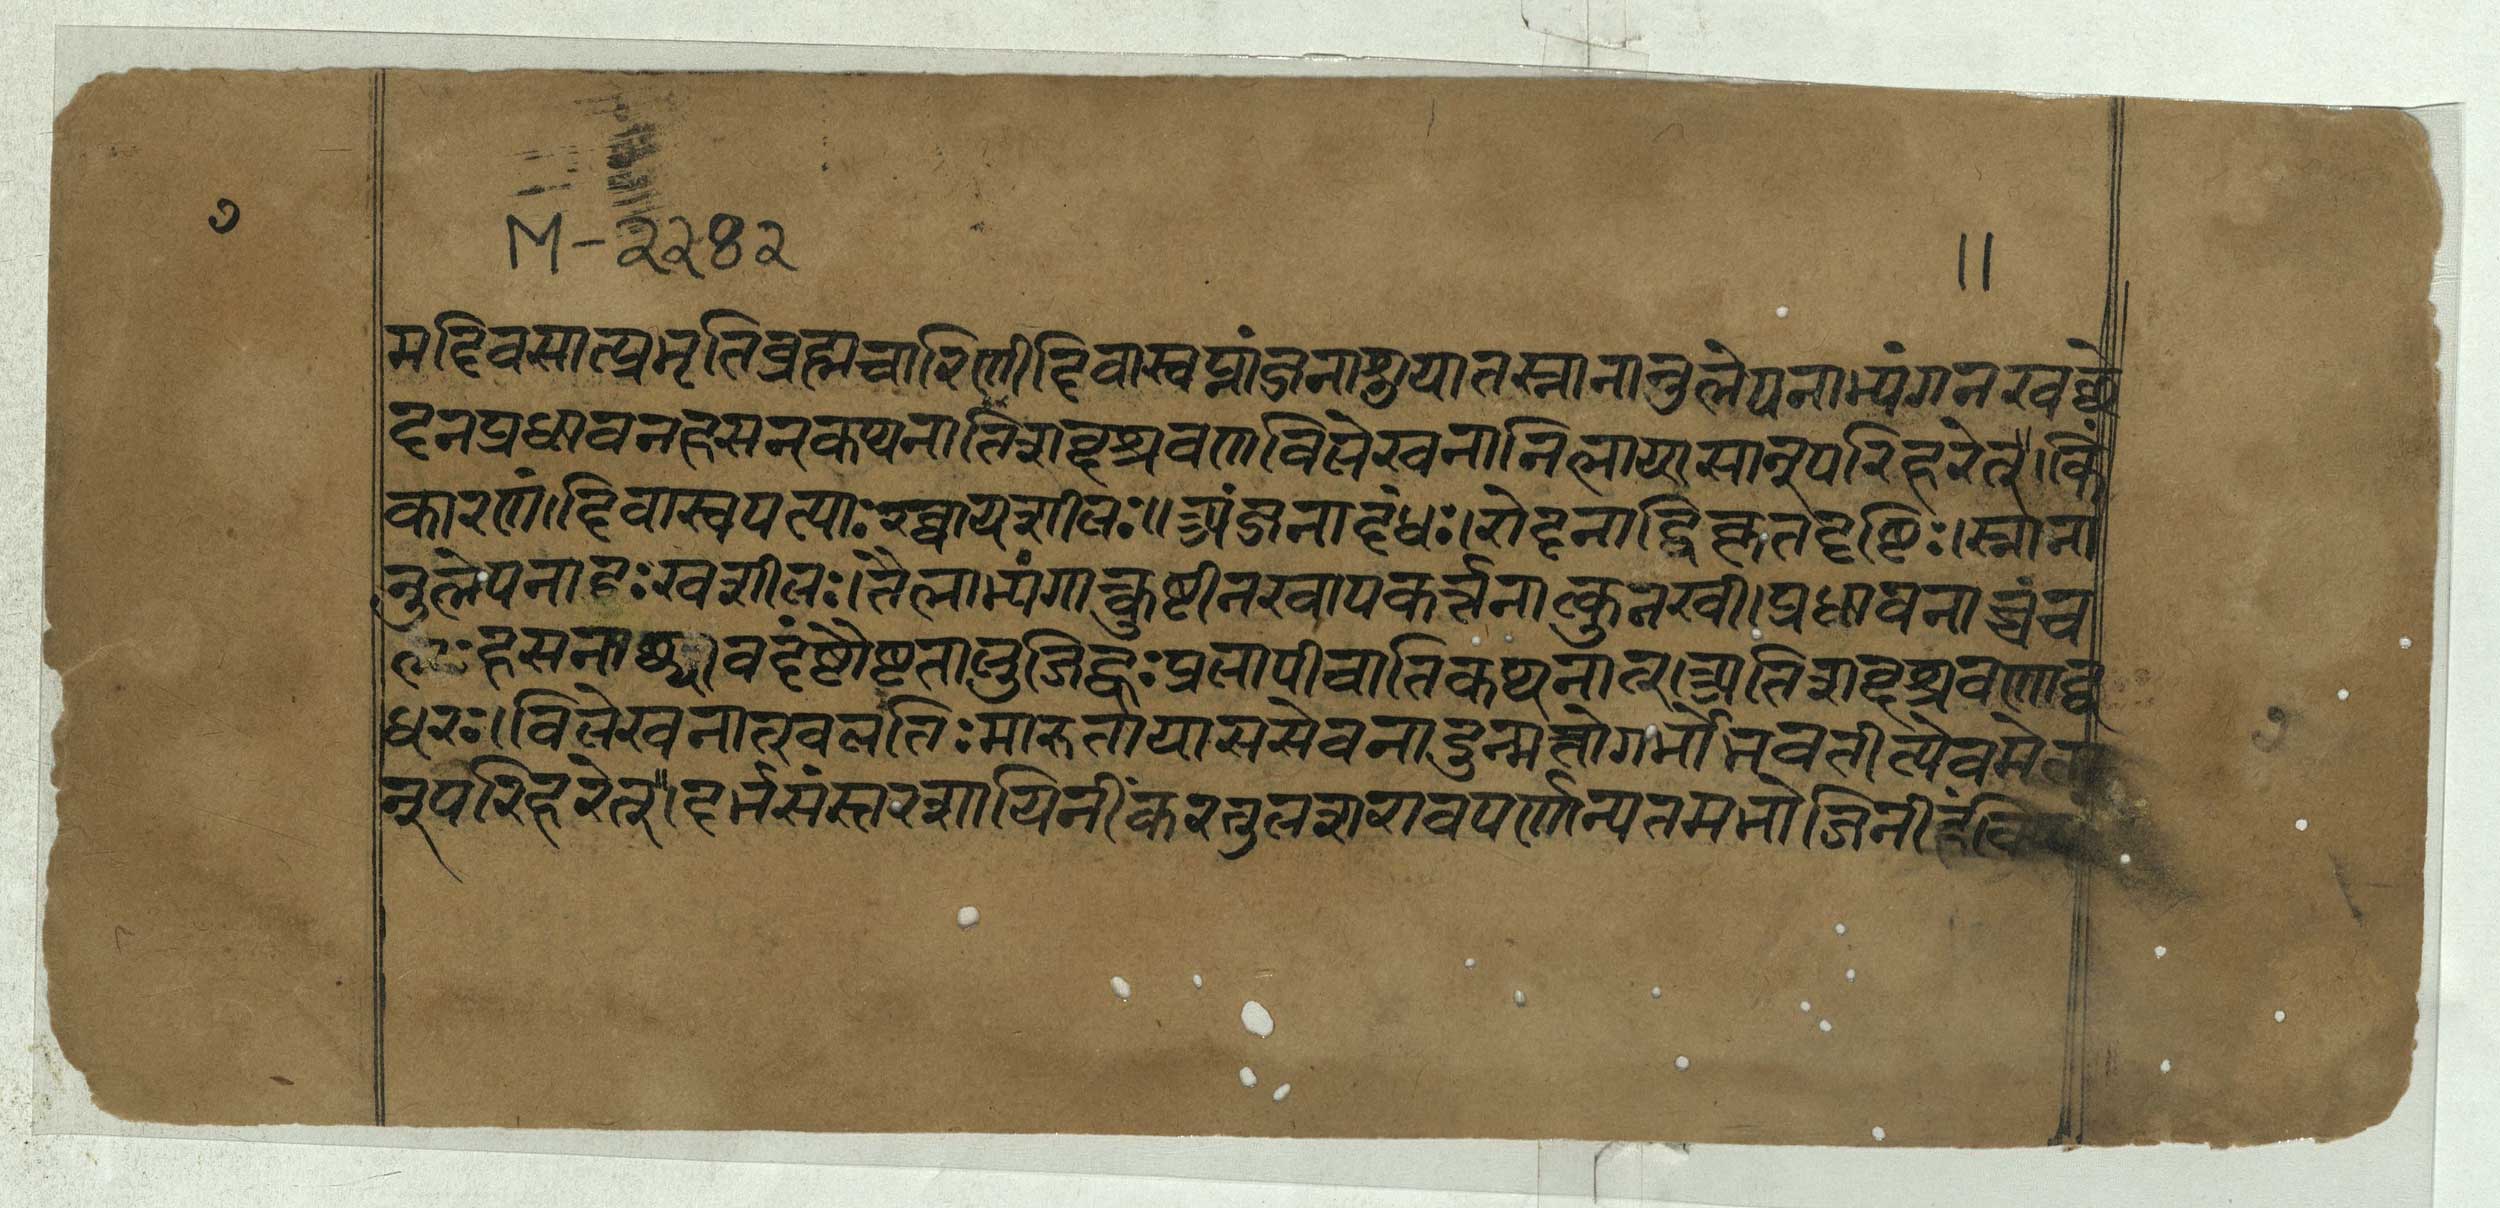 ७
M-२२४२
॥
मदिवसात्प्रभृतिब्रह्मचारिणीदिवास्वप्नांजनाश्रुपातस्नानानुलेपनाभ्यंगनखछे
दनप्रधावनहसनकथनातिशब्दश्रवणविलेखनानिलायासान्परिहरेत्।किं
कारणं।दिवास्वपत्याःस्वापशीलः॥अंजनादंधः।रोदनाद्विकृतदृष्टिः।स्नाना
नुलेपनादुःखशीलः।तैलाभ्यंगात्कुष्टीनखापकर्त्तनात्कुनखी।प्रधावनाच्चंच
लःहसनाच्छ्यावदंष्टौष्टतालुजिह्वःप्रलापीचातिकथनात्।अतिशब्दश्रवणाद्ब
धिरः।विलेखनात्खलतिःमारुतायाससेवनादुन्मत्तोगर्भोभवतीत्येवमेता
न्परिहरेत्।दर्भसंस्तरशायिनींकरतुलशरावपर्णान्यतमभोजिनींहवि